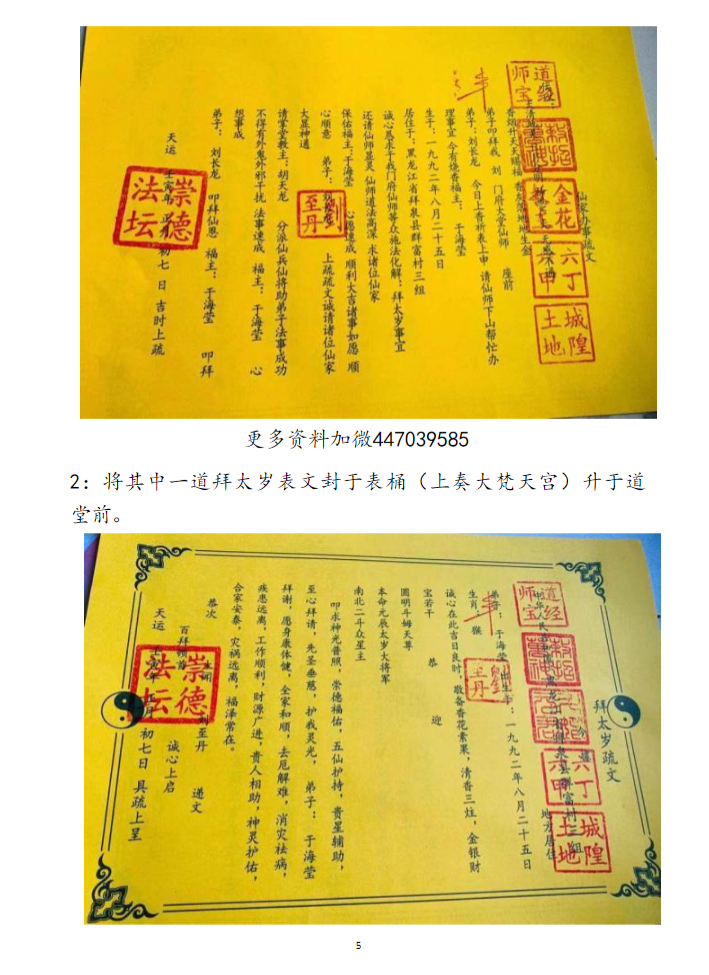 仙家办事疏文
香烟升天天赐福 香灰落地地生金
弟子叩拜我 刘 门府大堂仙师 座前
弟子：刘长龙 今日上香祈表上申 请仙师下山帮忙办
理事宜 今有烧香福主： 于海莹
生于：一九九二年八月二十五日
居住于：黑龙江省拜泉县群富村三组
诚心恳求于我门府仙师等众施法化解：拜太岁事宜
还请仙师显灵 仙师道法高深 求诸位仙家
保佑福主：于海莹 心愿速成 顺利大吉诸事如愿 顺
心顺意 弟子： 上疏疏文诚请诸位仙家
大显神通
请掌堂教主：胡天龙 分派仙兵仙将助弟子法事成功
不得有外鬼外邪干扰 法事速成 福主：于海莹 心
想事成
弟子： 刘长龙 叩拜仙恩 福主：于海莹 叩拜
天运 壬寅年 正月 初七 日 吉时上疏
道经师宝
金花教主
六丁六甲
城隍土地
劉至丹
崇德法坛
更多资料加微447039585
2：将其中一道拜太岁表文封于表桶（上奏大梵天宫）升于道
堂前。
拜太岁疏文
今据
中华人民共和国 黑龙江省拜泉县群富村三组
地方居住
弟子：于海莹 出生于：一九九二年八月二十五日
生肖：猴
诚心在此吉日良时，敬备香花素果，清香三炷，金银财
宝若干 恭 迎
圆明斗姆天尊
本命元辰太岁大将军
南北二斗众星主
叩求神光普照，崇德福佑，五仙护持，贵星辅助，
至心拜请，先圣垂慈，护我灵光，弟子： 于海莹
拜谢，愿身康体健，全家和顺，去厄解难，消灾祛病，
疾患远离，工作顺利，财源广进，贵人相助，神灵护佑，
合家安泰，灾祸远离，福泽常在。
恭次
百拜
上闻
刘至丹 递文
诚心上启
天运 壬寅年 正月 初七日 具疏上呈
道经师宝
六丁六甲
城隍土地
劉至丹
崇德法坛
5